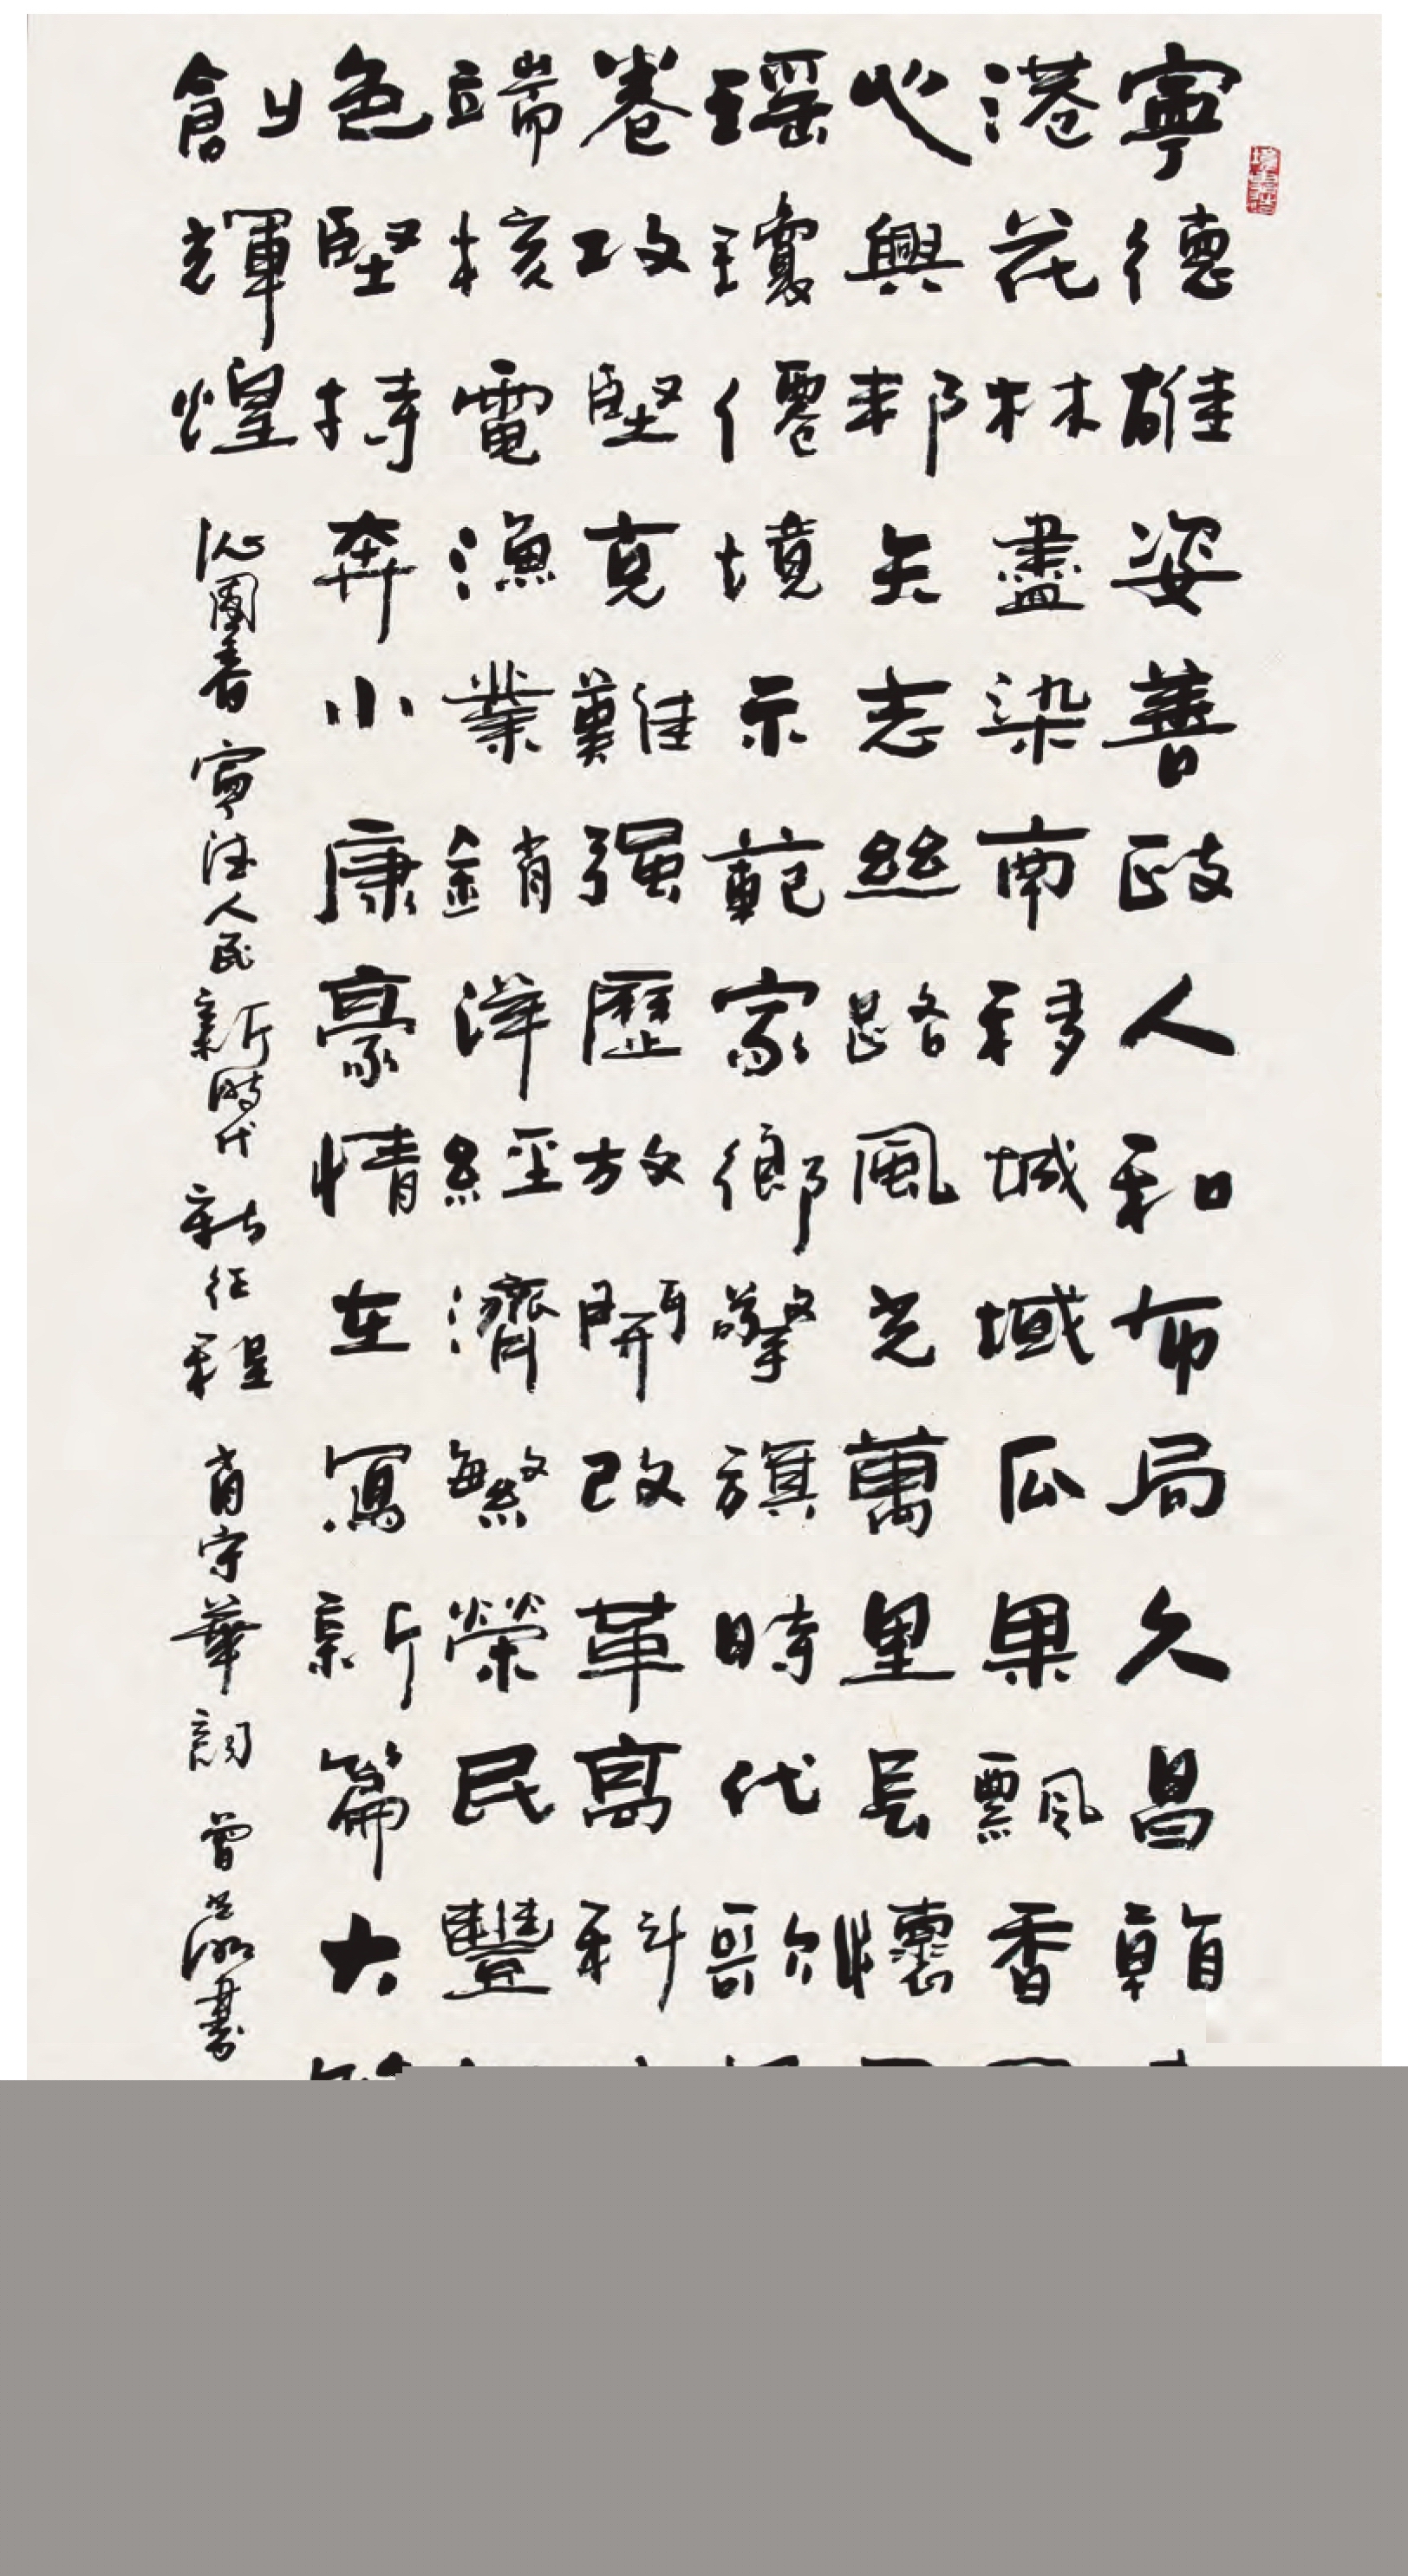 寧德雄姿善政人和布局久昌
港花林盡染南移城域瓜果飄香
心興邦矢志絲路風光萬里長懷
瑶瓊僊境示範家鄉擎旗時代歌
卷攻堅克難强歷放開改革高科
端核電漁業銷洋經濟繁榮民豐
色堅持奔小康豪情在寫新篇大
創輝煌 沁園春 寧德人民新時代新征程 肖華詞 曾書